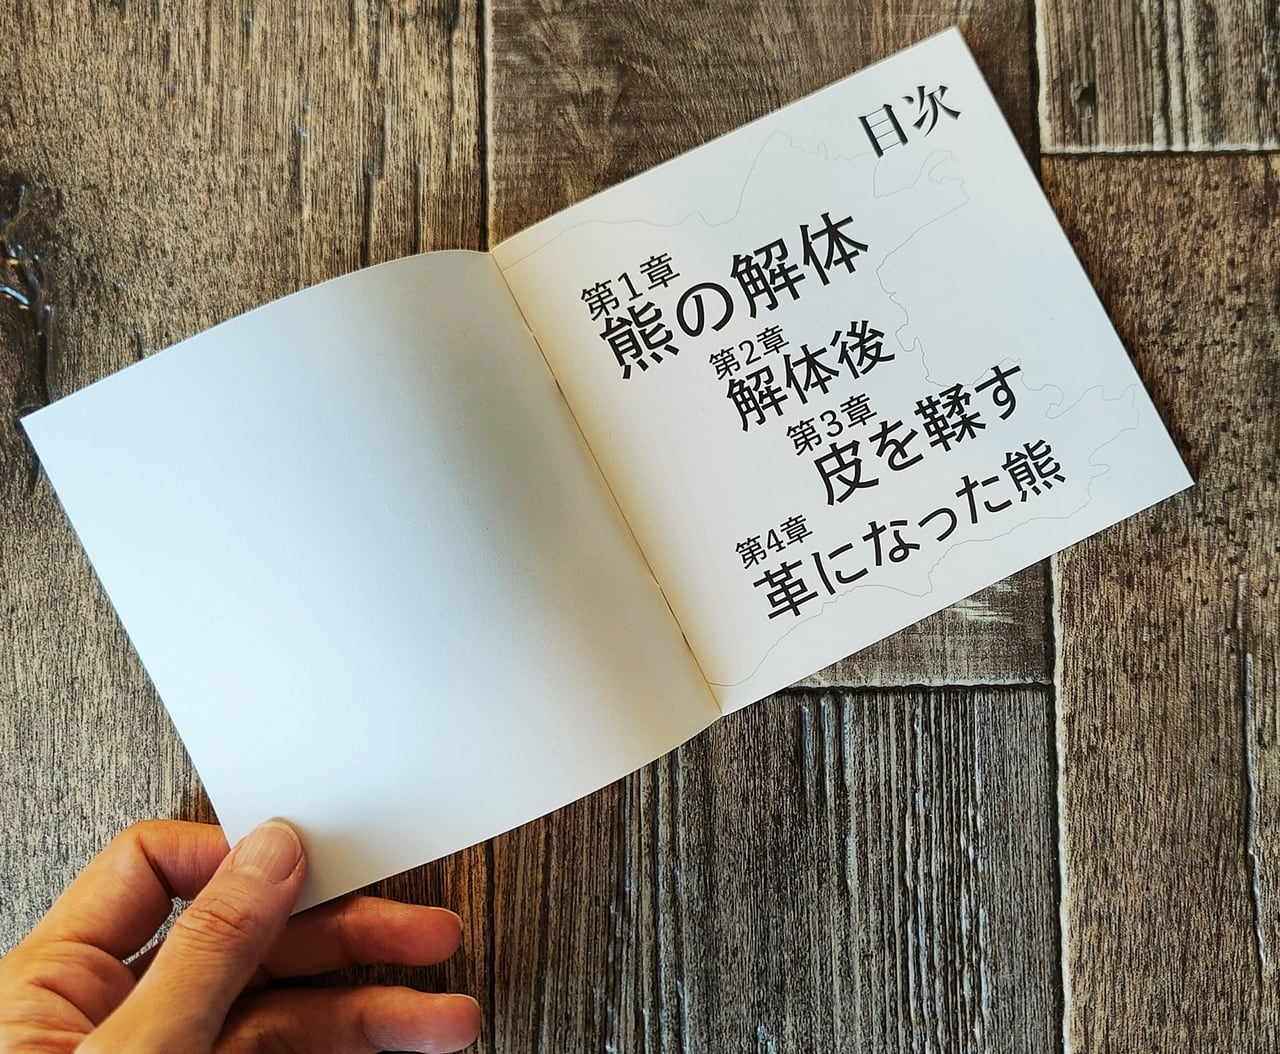 目次
第1章
熊の解体
第2章
解体後
第3章
皮を鞣す
第4章
革になった熊